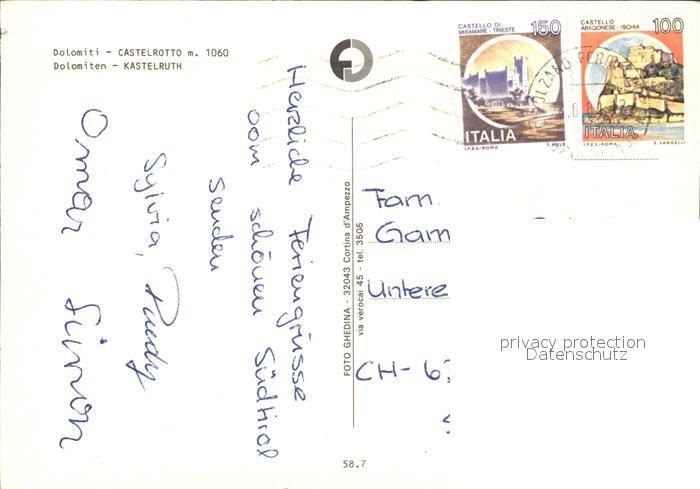 Dolomiti - CASTELROTTO m. 1060
Dolomiten - KASTELRUTH
Herzliche Feriengrüsse
vom schönen Südtirol
senden
Sylvia,
Omar Simon
FOTO GHEDINA - 32043 Cortina d'Ampezzo
via verocai 45 - tel. 3505
58.7
CASTELLO DI
MIRAMARE - TRIESTE
150
ITALIA
I.P.Z.S.-ROMA
CASTELLO
ARAGONESE - ISCHIA
100
ITALIA
I.P.Z.S.-ROMA E. VANGELLI
Fam.
Gam
Untere
CH - 6
privacy protection
Datenschutz